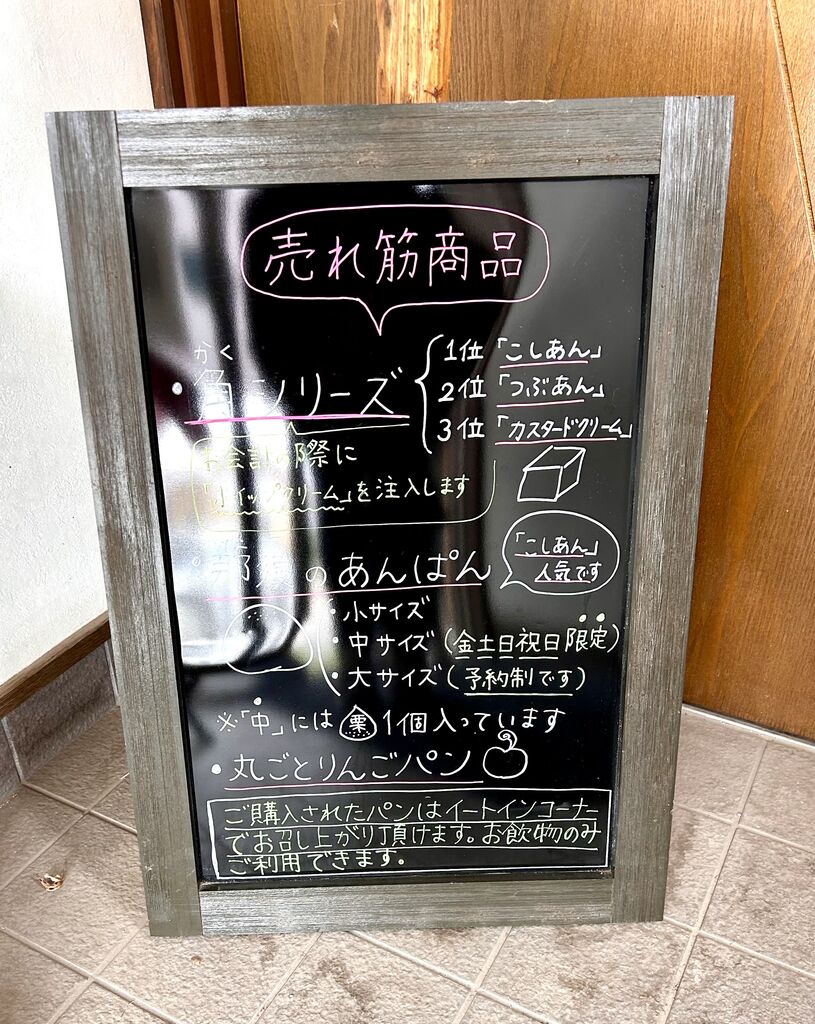 売れ筋商品
かく
・角シリーズ
1位「こしあん」
2位「つぶあん」
3位「カスタードクリーム」
お会計の際に
「ホイップクリーム」を注入します
のあんぱん
「こしあん」
人気です
・小サイズ
・中サイズ(金土日祝日限定)
・大サイズ(予約制です)
※「中」には栗1個入っています
・丸ごとりんごパン
ご購入されたパンはイートインコーナー
でお召し上がり頂けます。お飲物のみ
ご利用できます。